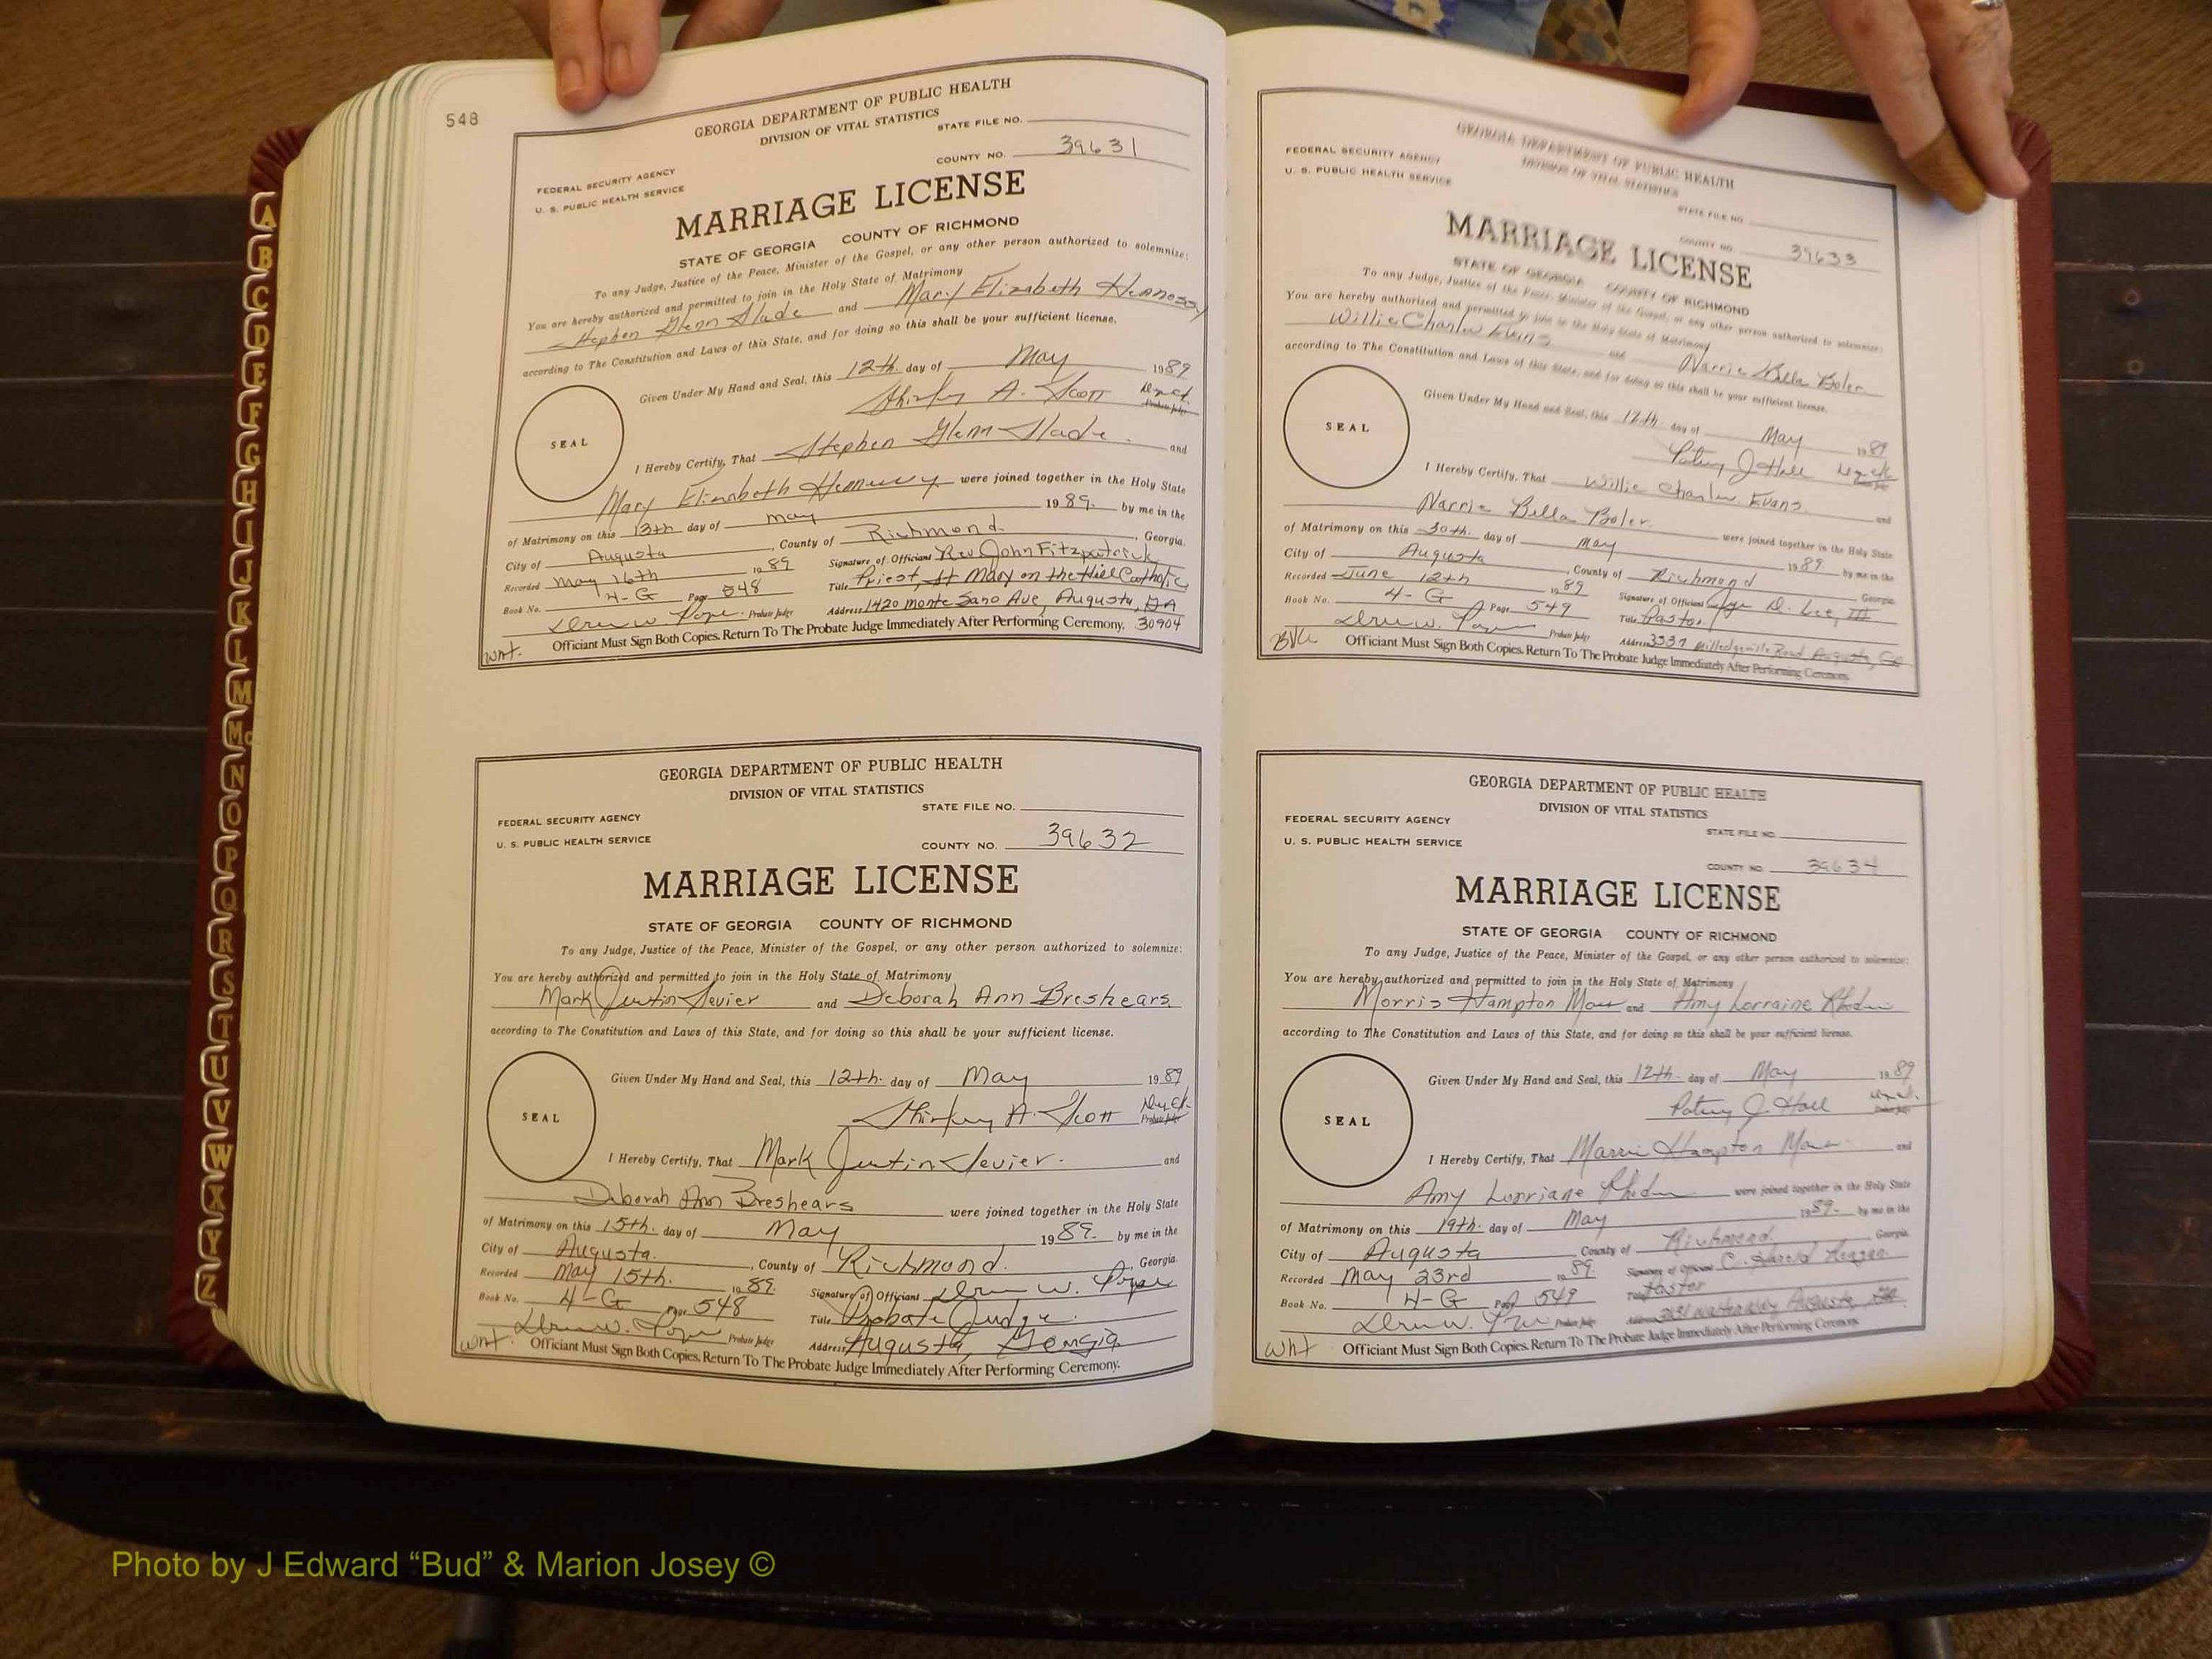 548
GEORGIA DEPARTMENT OF PUBLIC HEALTH
DIVISION OF VITAL STATISTICS
STATE FILE NO.
COUNTY NO. 39631
FEDERAL SECURITY AGENCY
U. S. PUBLIC HEALTH SERVICE
MARRIAGE LICENSE
STATE OF GEORGIA COUNTY OF RICHMOND
To any Judge, Justice of the Peace, Minister of the Gospel, or any other person authorized to solemnize:
You are hereby authorized and permitted to join in the Holy State of Matrimony
Stephen Glenn Slade and Mary Elizabeth Hennessy
according to The Constitution and Laws of this State, and for doing so this shall be your sufficient license.
Given Under My Hand and Seal, this 12th. day of May 1989
Shirley A. Scott Dep. Clk.
Probate Judge
SEAL
I Hereby Certify, That Stephen Glenn Slade. and
Mary Elizabeth Hennessy were joined together in the Holy State
of Matrimony on this 13th day of May 1989. by me in the
City of Augusta, County of Richmond, Georgia.
Recorded May 16th 1989 Signature of Official Rev John Fitzpatrick
Book No. 4-G Page 548 Title Priest, St Mary on the Hill Catholic
Probate Judge Address 1420 Monte Sano Ave, Augusta, GA
wnt. Officiant Must Sign Both Copies. Return To The Probate Judge Immediately After Performing Ceremony. 30904
GEORGIA DEPARTMENT OF PUBLIC HEALTH
DIVISION OF VITAL STATISTICS
STATE FILE NO.
FEDERAL SECURITY AGENCY
U. S. PUBLIC HEALTH SERVICE
COUNTY NO. 39632
MARRIAGE LICENSE
STATE OF GEORGIA COUNTY OF RICHMOND
To any Judge, Justice of the Peace, Minister of the Gospel, or any other person authorized to solemnize:
You are hereby authorized and permitted to join in the Holy State of Matrimony
Mark Justin Sevier and Deborah Ann Breshears
according to The Constitution and Laws of this State, and for doing so this shall be your sufficient license.
Given Under My Hand and Seal, this 12th. day of May 1989
Shirley A. Scott Dep. Clk.
Probate Judge
SEAL
I Hereby Certify, That Mark Justin Sevier. and
Deborah Ann Breshears were joined together in the Holy State
of Matrimony on this 15th. day of May 1989. by me in the
City of Augusta., County of Richmond., Georgia.
Recorded May 15th. 1989. Signature of Official
Book No. 4-G Page 548 Title Probate Judge.
Probate Judge Address Augusta, Georgia
wnt. Officiant Must Sign Both Copies. Return To The Probate Judge Immediately After Performing Ceremony.
GEORGIA DEPARTMENT OF PUBLIC HEALTH
DIVISION OF VITAL STATISTICS
FEDERAL SECURITY AGENCY
U. S. PUBLIC HEALTH SERVICE
STATE FILE NO.
COUNTY NO. 39633
MARRIAGE LICENSE
STATE OF GEORGIA COUNTY OF RICHMOND
To any Judge, Justice of the Peace, Minister of the Gospel, or any other person authorized to solemnize:
You are hereby authorized and permitted to join in the Holy State of Matrimony
Willie Charles Evans and Narrie Bella Boler
according to The Constitution and Laws of this State, and for doing so this shall be your sufficient license.
Given Under My Hand and Seal, this 12th. day of May 1989
Patsy J. Hall Dep. Clk
SEAL
I Hereby Certify, That Willie Charles Evans. and
Narrie Bella Boler. were joined together in the Holy State
of Matrimony on this 30th. day of May 1989. by me in the
City of Augusta, County of Richmond Georgia.
Recorded June 12th 1989 Signature of Official D. Lee, III
Book No. 4-G Page 549 Title Pastor
Probate Judge Address 3337 Milledgeville Road Augusta, Ga
Officiant Must Sign Both Copies. Return To The Probate Judge Immediately After Performing Ceremony.
GEORGIA DEPARTMENT OF PUBLIC HEALTH
DIVISION OF VITAL STATISTICS
FEDERAL SECURITY AGENCY
U. S. PUBLIC HEALTH SERVICE
STATE FILE NO.
COUNTY NO. 39634
MARRIAGE LICENSE
STATE OF GEORGIA COUNTY OF RICHMOND
To any Judge, Justice of the Peace, Minister of the Gospel, or any other person authorized to solemnize:
You are hereby authorized and permitted to join in the Holy State of Matrimony
Morris Hampton and Amy Lorraine
according to The Constitution and Laws of this State, and for doing so this shall be your sufficient license.
Given Under My Hand and Seal, this 12th. day of May 1989
Patsy J. Hall
SEAL
I Hereby Certify, That Morris Hampton and
Amy Lorriane were joined together in the Holy State
of Matrimony on this 19th. day of May 1989. by me in the
City of Augusta, County of Richmond. Georgia.
Recorded May 23rd 1989. Signature of Official C. Harold
Book No. 4-G Page 549 Title Pastor
Probate Judge Address Augusta,
wnt Officiant Must Sign Both Copies. Return To The Probate Judge Immediately After Performing Ceremony.
A
B
C
D
E
F
G
H
I
J
K
L
M
Mc
N
O
P
Q
R
S
T
U
V
W
X
Y
Z
Photo by J Edward “Bud” & Marion Josey ©